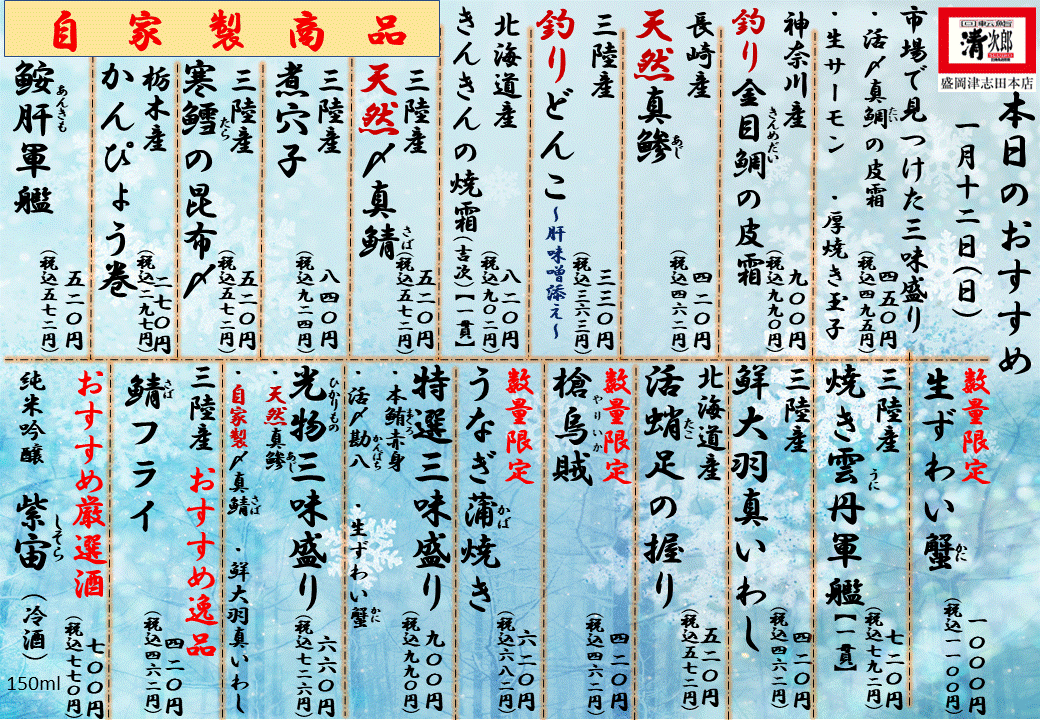 回転鮨
清次郎
盛岡津志田本店
本日のおすすめ
一月十二日(日)
市場で見つけた三味盛り
・活〆真鯛の皮霜
たい
・生サーモン ・厚焼き玉子
四五〇円
(税込四九五円)
神奈川産
釣り金目鯛の皮霜
きんめだい
九〇〇円
(税込九九〇円)
長崎産
天然真鯵
あじ
四二〇円
(税込四六二円)
三陸産
釣りどんこ~肝味噌添え~
三三〇円
(税込三六三円)
北海道産
きんきんの焼霜(吉次)【一貫】
八二〇円
(税込九〇二円)
自家製商品
三陸産
天然〆真鯖
さば
五二〇円
(税込五七二円)
三陸産
煮穴子
八四〇円
(税込九二四円)
三陸産
寒鱈の昆布〆
たら
五二〇円
(税込五七二円)
栃木産
かんぴょう巻
二七〇円
(税込二九七円)
鮟肝軍艦
あんきも
五二〇円
(税込五七二円)
数量限定
生ずわい蟹
かに
一〇〇〇円
(税込一一〇〇円)
三陸産
焼き雲丹軍艦【一貫】
うに
七二〇円
(税込七九二円)
三陸産
鮮大羽真いわし
四二〇円
(税込四六二円)
北海道産
活蛸足の握り
たこ
五二〇円
(税込五七二円)
数量限定
槍烏賊
やりいか
四二〇円
(税込四六二円)
数量限定
うなぎ蒲焼き
かば
六二〇円
(税込六八二円)
特選三味盛り
・本鮪赤身
まぐろ
・活〆勘八 ・生ずわい蟹
かんぱち
かに
九〇〇円
(税込九九〇円)
光物三味盛り
ひかりもの
・天然真鯵
あじ
・自家製〆真鯖 ・鮮大羽真いわし
さば
六六〇円
(税込七二六円)
おすすめ逸品
三陸産
鯖フライ
さば
四二〇円
(税込四六二円)
おすすめ厳選酒
純米吟醸 紫宙(冷酒)
しそら
七〇〇円
(税込七七〇円)
150ml